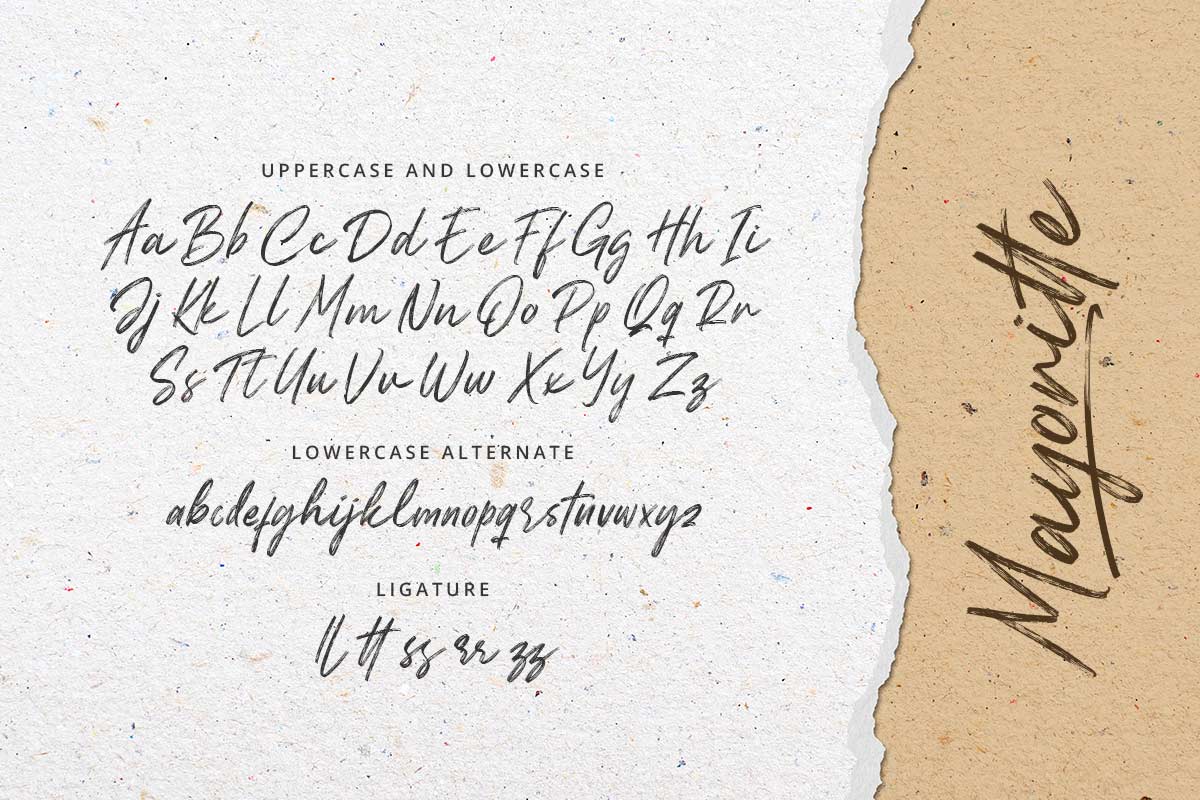 UPPERCASE AND LOWERCASE
Aa Bb Cc Dd Ee Ff Gg Hh Ii
Jj Kk Ll Mm Nn Oo Pp Qq Rr
Ss Tt Uu Vv Ww Xx Yy Zz
LOWERCASE ALTERNATE
abcdefghijklmnopqrstuvwxyz
LIGATURE
ll tt ss rr zz
Mayoritte